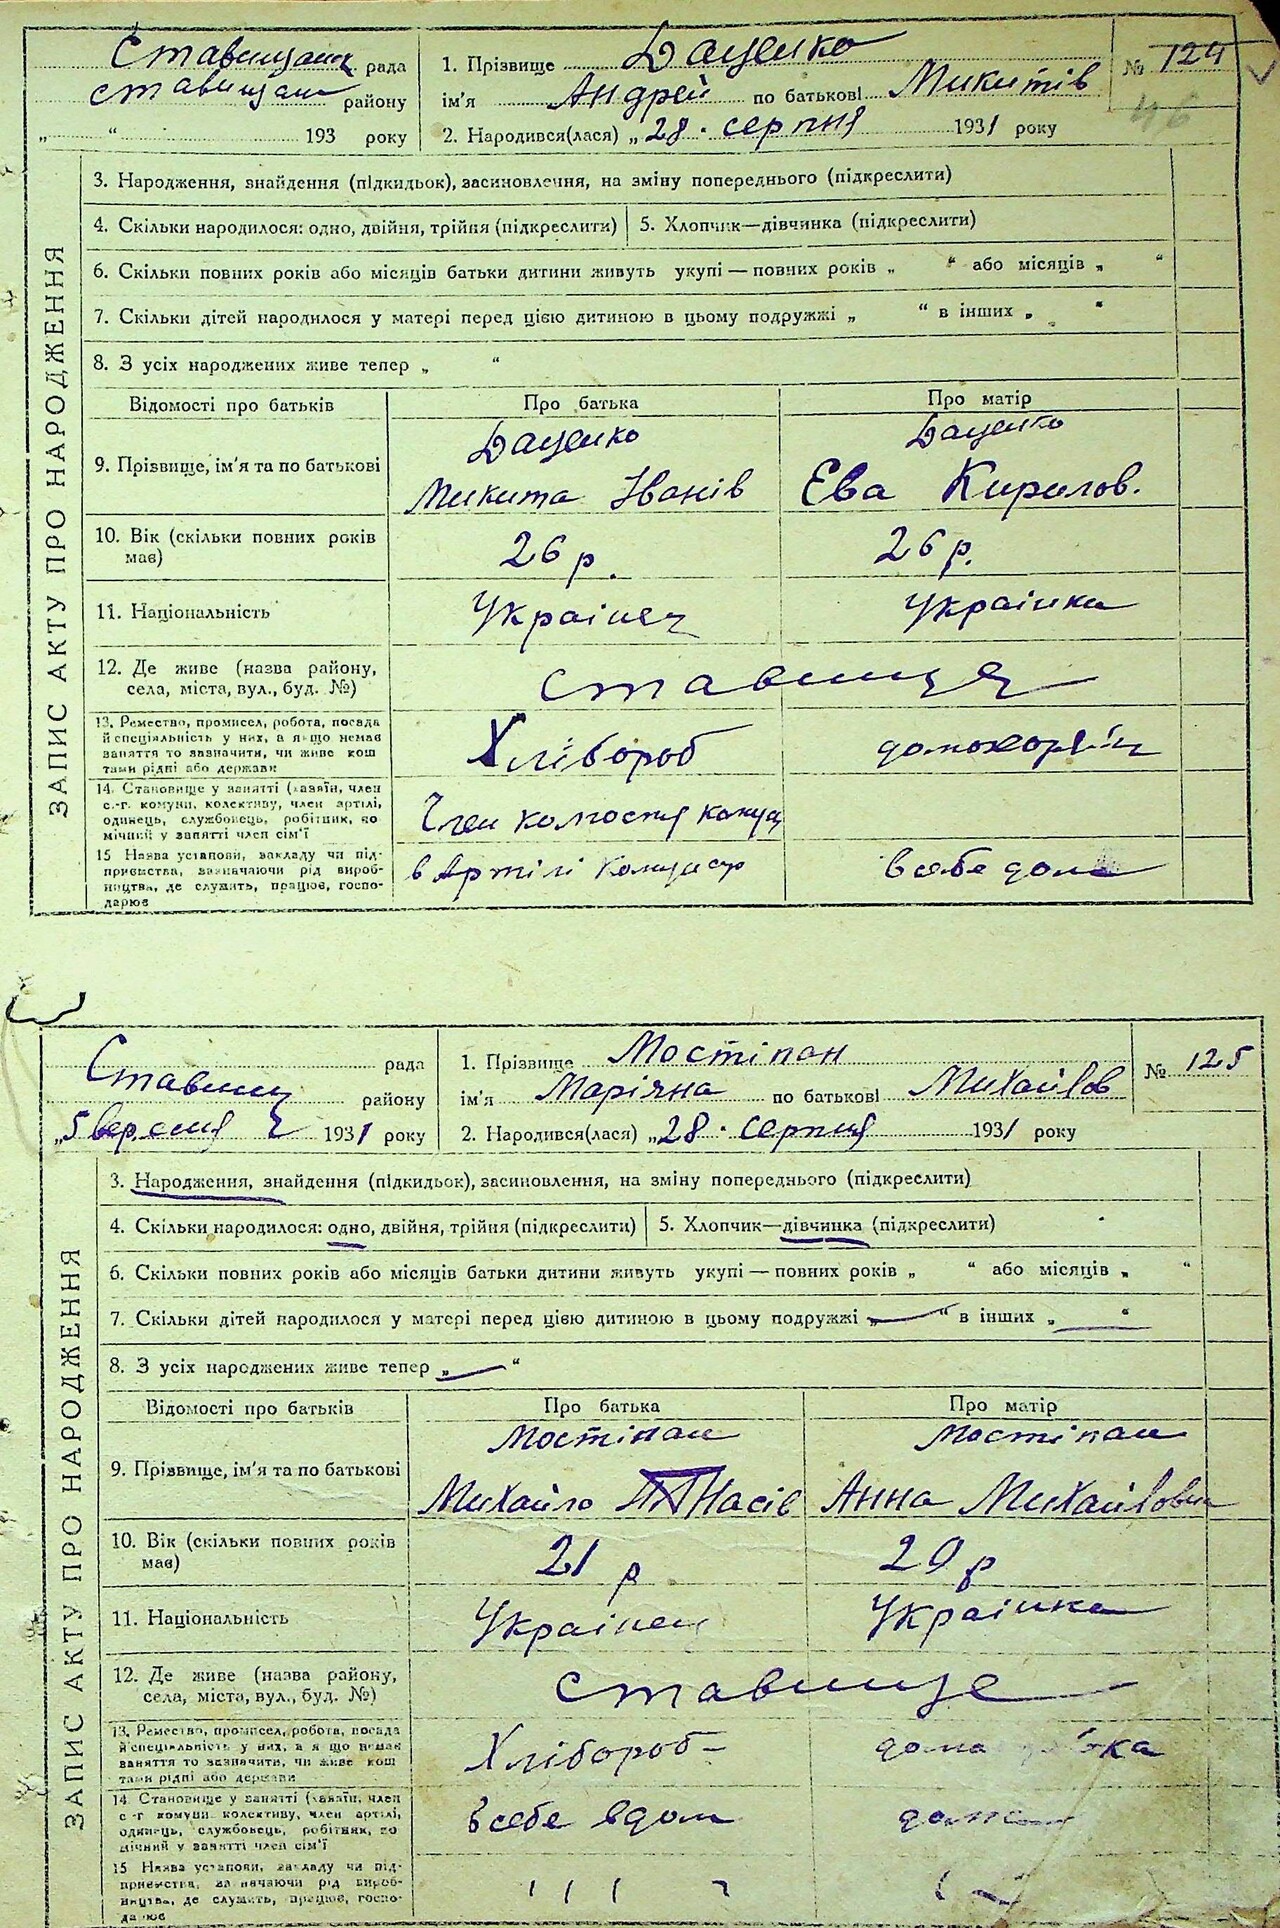 Ставищан рада
Ставищан району
„ “ 193 року
1. Прізвище Даценко
ім'я Андрей по батькові Микитів
2. Народився(лася) „28. серпня 1931 року
№ 124
46
ЗАПИС АКТУ ПРО НАРОДЖЕННЯ
3. Народження, знайдення (підкидьок), засиновлення, на зміну попереднього (підкреслити)
4. Скільки народилося: одно, двійня, трійня (підкреслити) 5. Хлопчик—дівчинка (підкреслити)
6. Скільки повних років або місяців батьки дитини живуть укупі — повних років „ “ або місяців „ “
7. Скільки дітей народилося у матері перед цією дитиною в цьому подружжі „ “ в інших „ “
8. З усіх народжених живе тепер „ “
Відомості про батьків Про батька Про матір
9. Прізвище, ім'я та по батькові
Даценко
Микита Іванів
Даценко
Ева Кирилов.
10. Вік (скільки повних років
має)
26 р.
26 р.
11. Національність Українец Українка
12. Де живе (назва району,
села, міста, вул., буд. №)
Ставище
13. Ремество, промисел, робота, посада
й спеціяльність у них, а якщо немає
заняття то зазначити, чи живе кош
тами рідні або держави
Хлібороб
14. Становище у занятті (хазяїн, член
с.-г. комуни, колективу, член артілі,
одинець, службовець, робітник, по
мічний у занятті член сім'ї
Член
15 Назва установи, закладу чи під-
приємства, зазначаючи рід вироб-
ництва, де служить, працює, госпо-
дарює
в Артілі
в себе дома
Ставищ рада
району
„5 вересня 1931 року
1. Прізвище Мостіпан
ім'я Маріяна по батькові Михайлов
2. Народився(лася) „28. серпня 1931 року
№ 125
ЗАПИС АКТУ ПРО НАРОДЖЕННЯ
3. Народження, знайдення (підкидьок), засиновлення, на зміну попереднього (підкреслити)
4. Скільки народилося: одно, двійня, трійня (підкреслити) 5. Хлопчик—дівчинка (підкреслити)
6. Скільки повних років або місяців батьки дитини живуть укупі — повних років „ “ або місяців „ “
7. Скільки дітей народилося у матері перед цією дитиною в цьому подружжі „—“ в інших „—“
8. З усіх народжених живе тепер „—“
Відомості про батьків Про батька Про матір
9. Прізвище, ім'я та по батькові
Мостіпан
Михайло
Мостіпан
Анна Михайловн
10. Вік (скільки повних років
має)
21 р
20 р
11. Національність Українец Українка
12. Де живе (назва району,
села, міста, вул., буд. №)
Ставище
13. Ремество, промисел, робота, посада
й спеціяльність у них, а якщо немає
заняття то зазначити, чи живе кош
тами рідні або держави
Хлібороб-
14. Становище у занятті (хазяїн, член
с.-г. комуни, колективу, член артілі,
одинець, службовець, робітник, по
мічний у занятті член сім'ї
в себе вдом
дома
15 Назва установи, закладу чи під-
приємства, зазначаючи рід вироб-
ництва, де служить, працює, госпо-
дарює